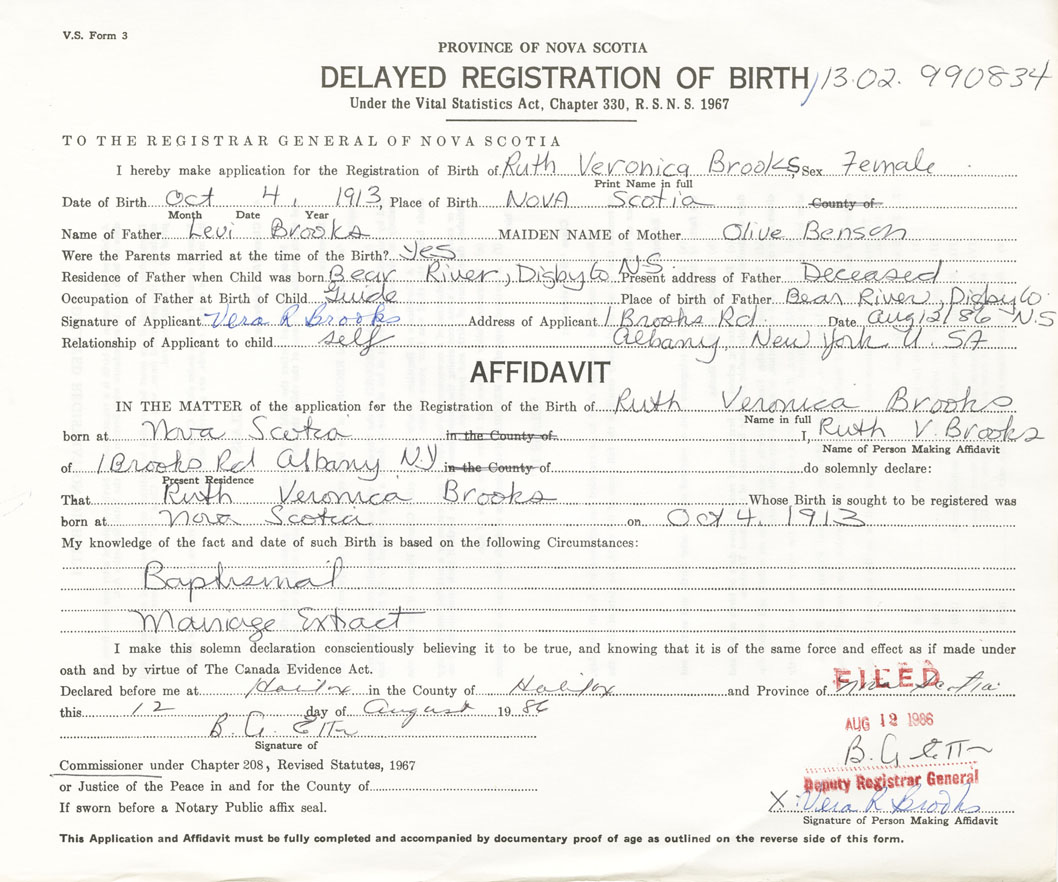 V.S. Form 3
PROVINCE OF NOVA SCOTIA
DELAYED REGISTRATION OF BIRTH, 13.02. 990834
Under the Vital Statistics Act, Chapter 330, R.S.N.S. 1967
TO THE REGISTRAR GENERAL OF NOVA SCOTIA
I hereby make application for the Registration of Birth of Ruth Veronica Brooks, Sex Female
Print Name in full
Date of Birth Oct 4, 1913, Place of Birth Nova Scotia County of
Month Date Year
Name of Father Levi Brooks MAIDEN NAME of Mother Olive Benson
Were the Parents married at the time of the Birth? Yes
Residence of Father when Child was born Bear River, Digby Co N.S. Present address of Father Deceased
Occupation of Father at Birth of Child Guide Place of birth of Father Bear River, Digby Co. N.S
Signature of Applicant Vera R Brooks Address of Applicant 1 Brooks Rd. Date Aug 12/86
Relationship of Applicant to child self Albany, New York U.SA
AFFIDAVIT
IN THE MATTER of the application for the Registration of the Birth of Ruth Veronica Brooks
Name in full
born at Nova Scotia in the County of I, Ruth V. Brooks
Name of Person Making Affidavit
of 1 Brooks Rd Albany N.Y in the County of do solemnly declare:
Present Residence
That Ruth Veronica Brooks Whose Birth is sought to be registered was
born at Nova Scotia on Oct 4, 1913
My knowledge of the fact and date of such Birth is based on the following Circumstances:
Baptismal
Marriage Extract
I make this solemn declaration conscientiously believing it to be true, and knowing that it is of the same force and effect as if made under
oath and by virtue of The Canada Evidence Act.
Declared before me at Halifax in the County of Halifax and Province of Nova Scotia
FILED
this 12 day of August 1986
AUG 12 1986
B. G. Etter
Signature of
B G Etter
Commissioner under Chapter 208, Revised Statutes, 1967
Deputy Registrar General
or Justice of the Peace in and for the County of
X: Vera R Brooks
If sworn before a Notary Public affix seal.
Signature of Person Making Affidavit
This Application and Affidavit must be fully completed and accompanied by documentary proof of age as outlined on the reverse side of this form.